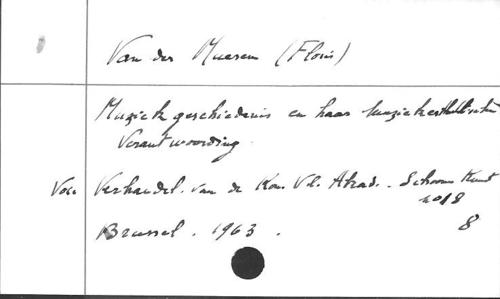 Van der Mueren (Floris)
Muziekgeschiedenis en haar muziekesthetische
Verantwoording.
Voir Verhandel. van de Kon. Vl. Akad. Schoone Kunst
no 18
Brussel. 1963. 8